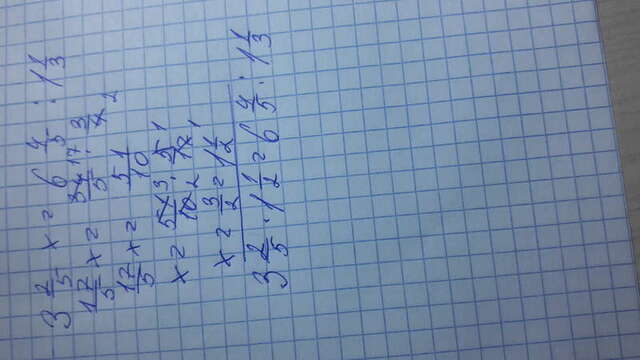 3 2/5 x = 6 4/5 : 1 1/3
17/5 x = 34 17/5 · 3/4 2
17/5 x = 51/10
x = 51 3/10 2 · 5 1/17 1
x = 3/2 = 1 1/2
3 2/5 · 1 1/2 = 6 4/5 : 1 1/3